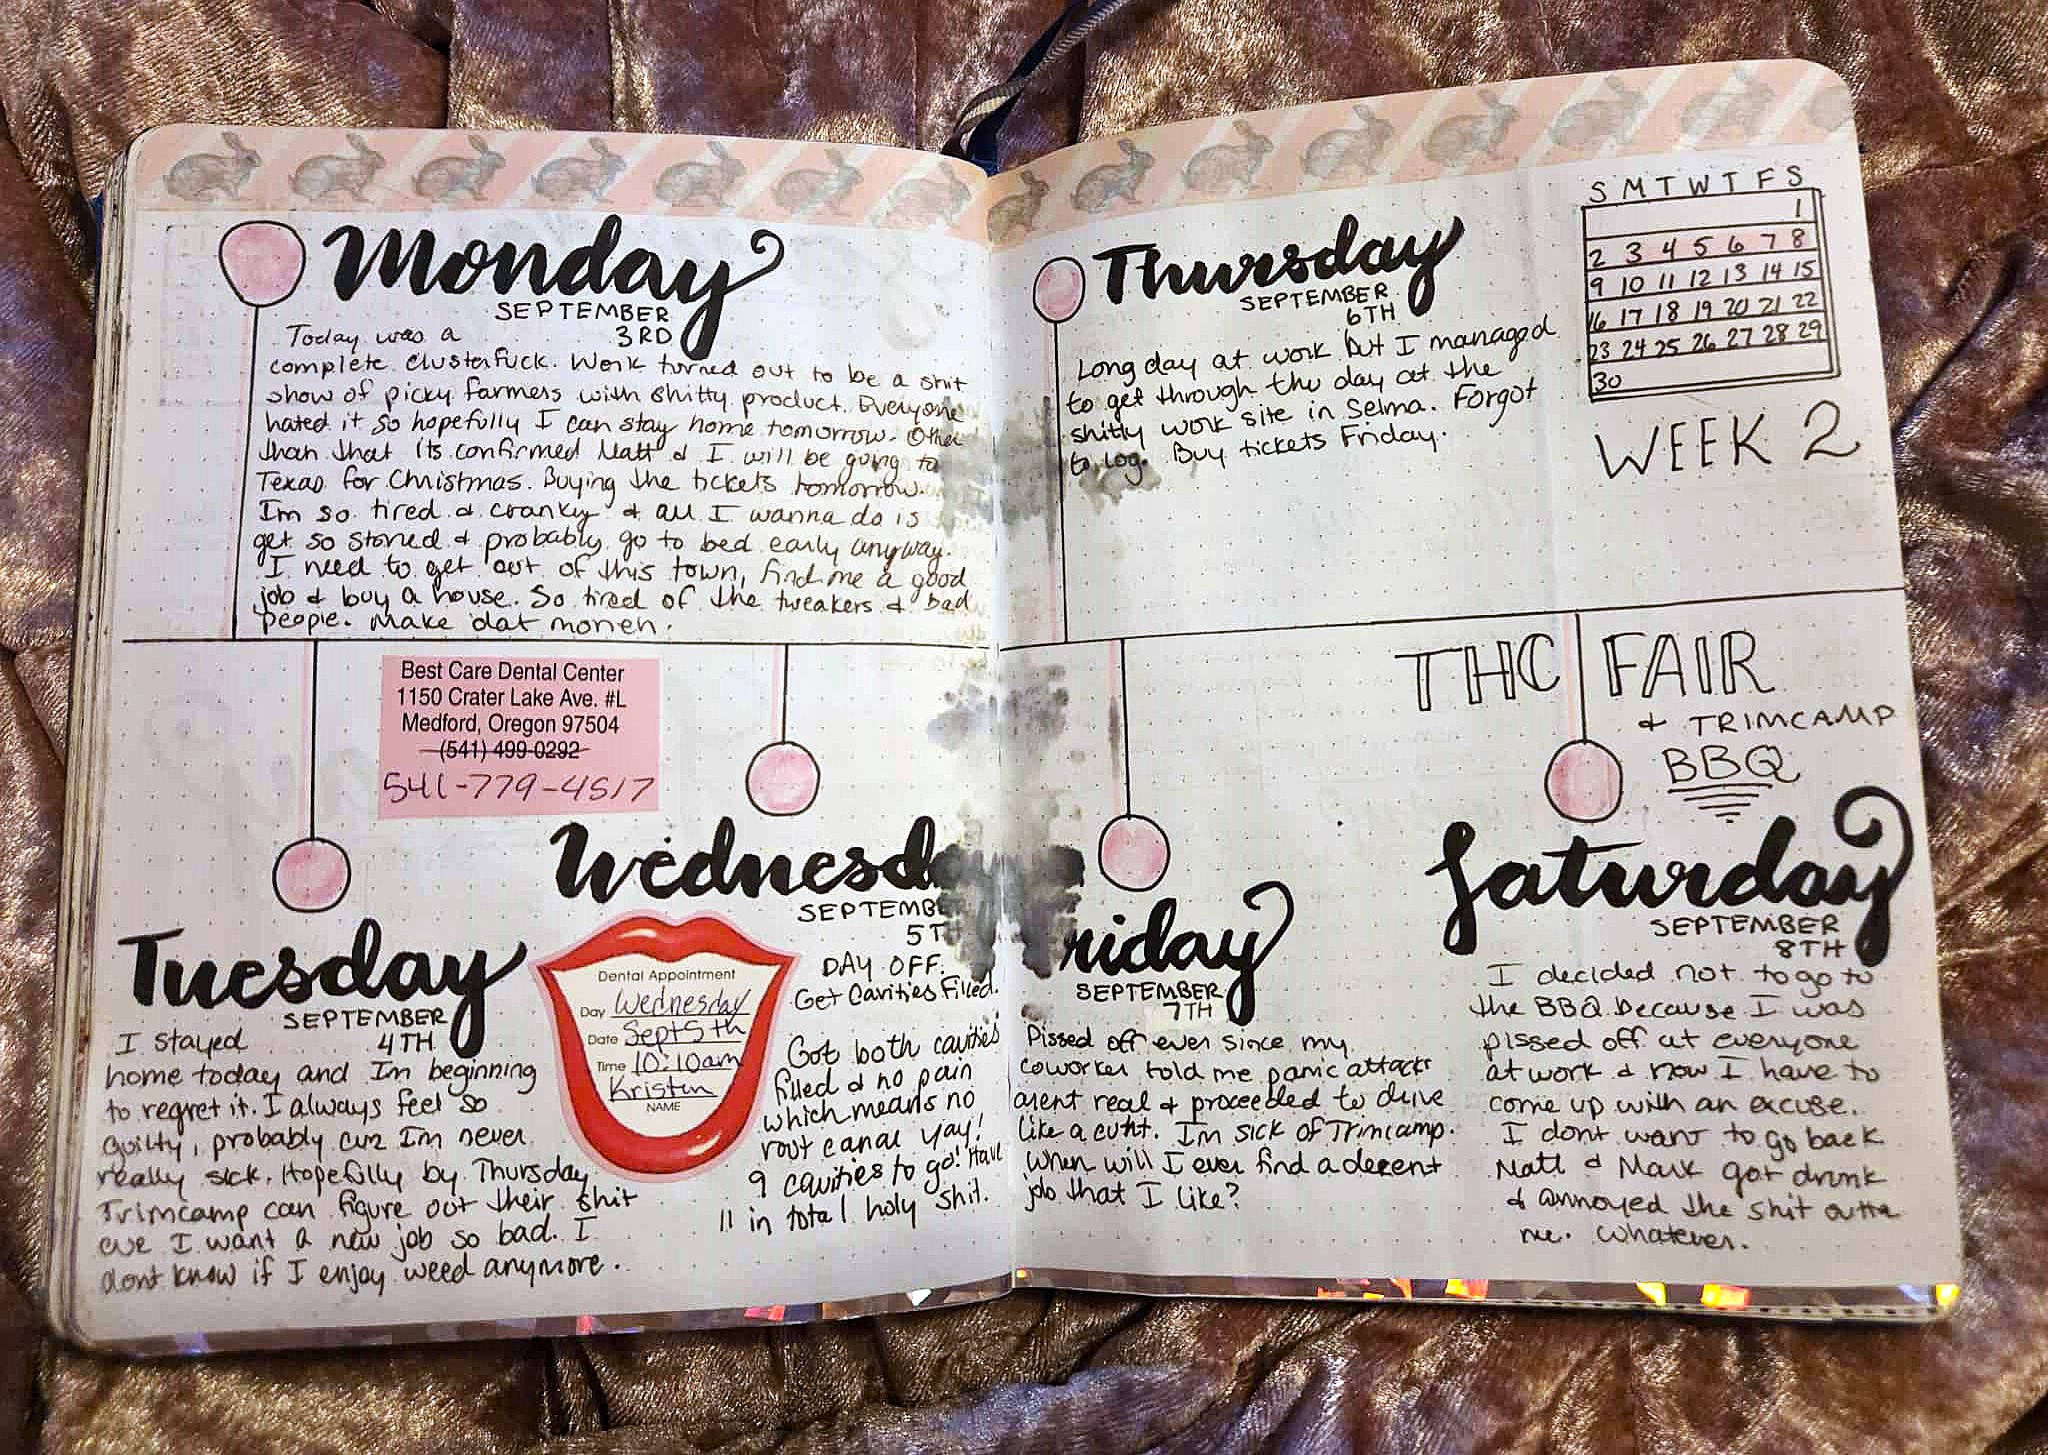 Monday
SEPTEMBER
3RD
Today was a
complete clusterfuck. Work turned out to be a shit
show of picky farmers with shitty product. Everyone
hated it so hopefully I can stay home tomorrow. Other
than that its confirmed Matt & I will be going to
Texas for Christmas. Buying the tickets tomorrow.
Im so tired & cranky & all I wanna do is
get so stoned & probably go to bed early anyway.
I need to get out of this town, find me a good
job & buy a house. So tired of the tweakers & bad
people. Make dat moneh.
Best Care Dental Center
1150 Crater Lake Ave. #L
Medford, Oregon 97504
(541) 499-0292
541-779-4517
Tuesday
SEPTEMBER
4TH
I stayed
home today and Im beginning
to regret it. I always feel so
guilty, probably cuz Im never
really sick. Hopefully by Thursday
Trimcamp can figure out their shit
cuz I want a new job so bad. I
dont know if I enjoy weed anymore.
Wednesd
SEPTEMB
5T
DAY OFF.
Get Cavities Filled.
Dental Appointment
Day Wednesday
Date Sept 5th
Time 10:10am
Kristin
NAME
Got both cavities
filled & no pain
which means no
root canal yay!
9 cavities to go! Have
11 in total holy shit.
Thursday
SEPTEMBER
6TH
Long day at work but I managed
to get through the day at the
shitty work site in Selma. Forgot
to log. Buy tickets Friday.
S M T W T F S
1
2 3 4 5 6 7 8
9 10 11 12 13 14 15
16 17 18 19 20 21 22
23 24 25 26 27 28 29
30
WEEK 2
riday
SEPTEMBER
7TH
Pissed off ever since my
coworker told me panic attacks
arent real & proceeded to drive
like a cunt. Im sick of Trimcamp.
When will I ever find a decent
job that I like?
THC FAIR
& TRIMCAMP
BBQ
Saturday
SEPTEMBER
8TH
I decided not to go to
the BBQ because I was
pissed off at everyone
at work & now I have to
come up with an excuse.
I dont want to go back
Matt & Mark got drunk
& annoyed the shit outta
me. Whatever.